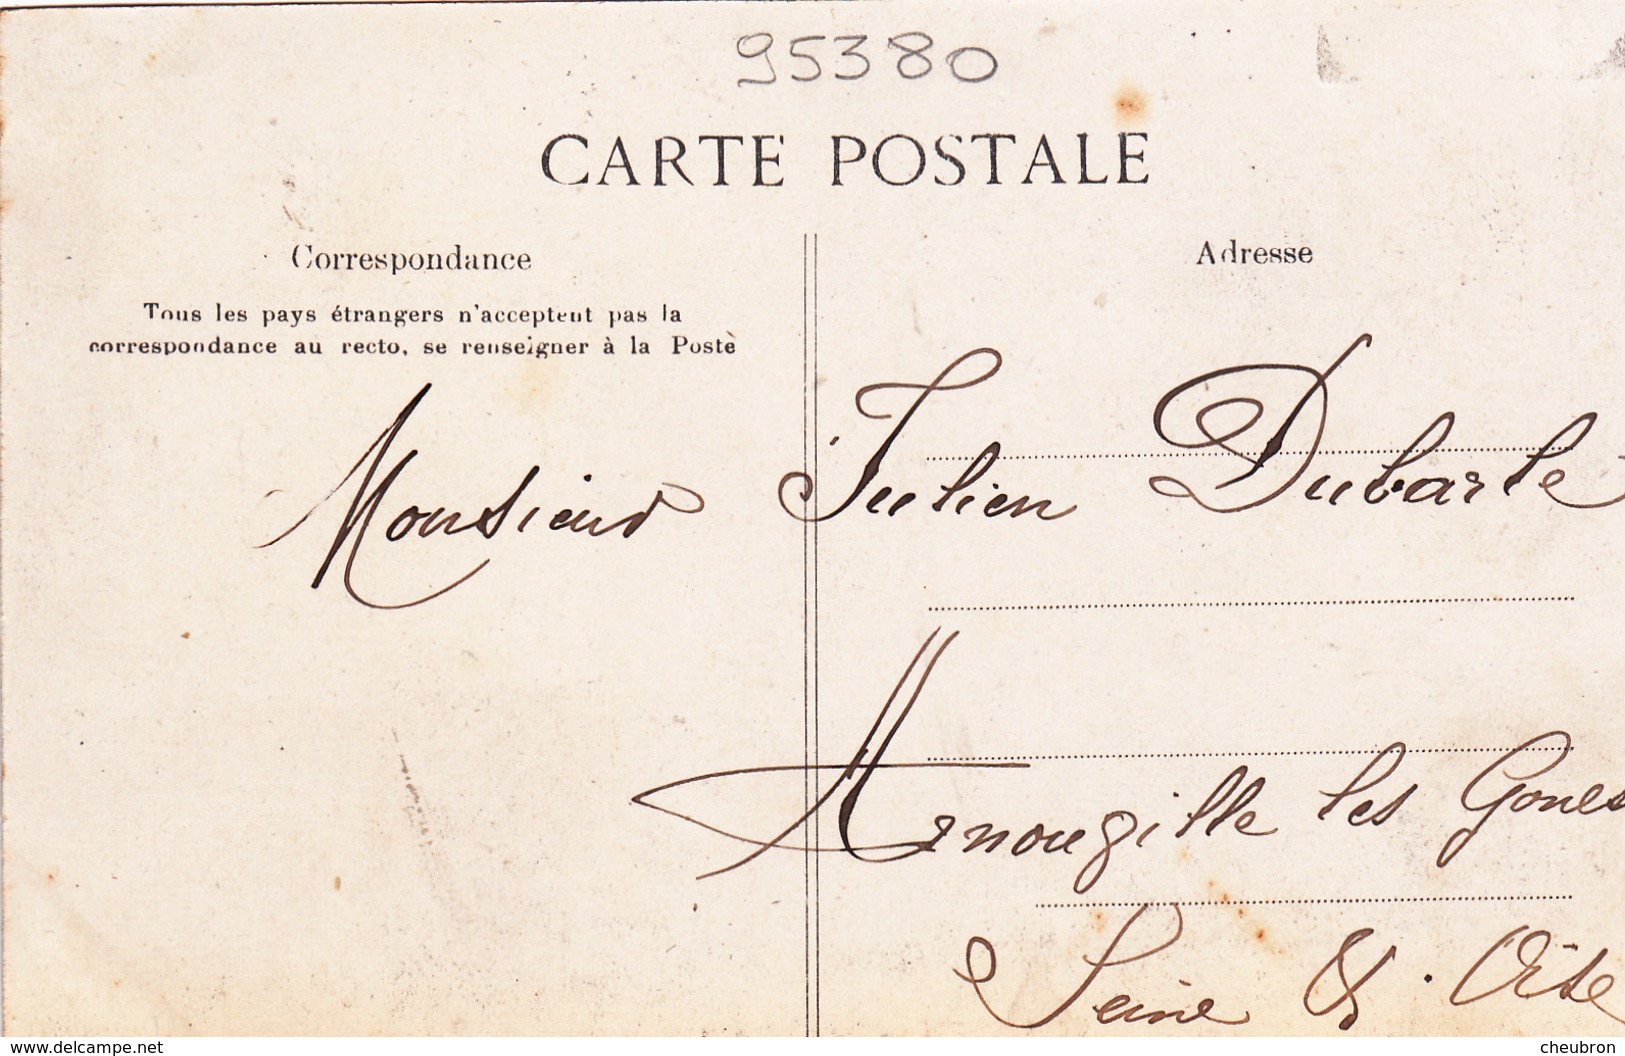 95380
CARTE POSTALE
Correspondance
Adresse
Tous les pays étrangers n'acceptent pas la
correspondance au recto, se renseigner à la Poste
Monsieur Julien Dubarle
Arnouville les Gones
Seine & Oise
www.delcampe.net
cheubron